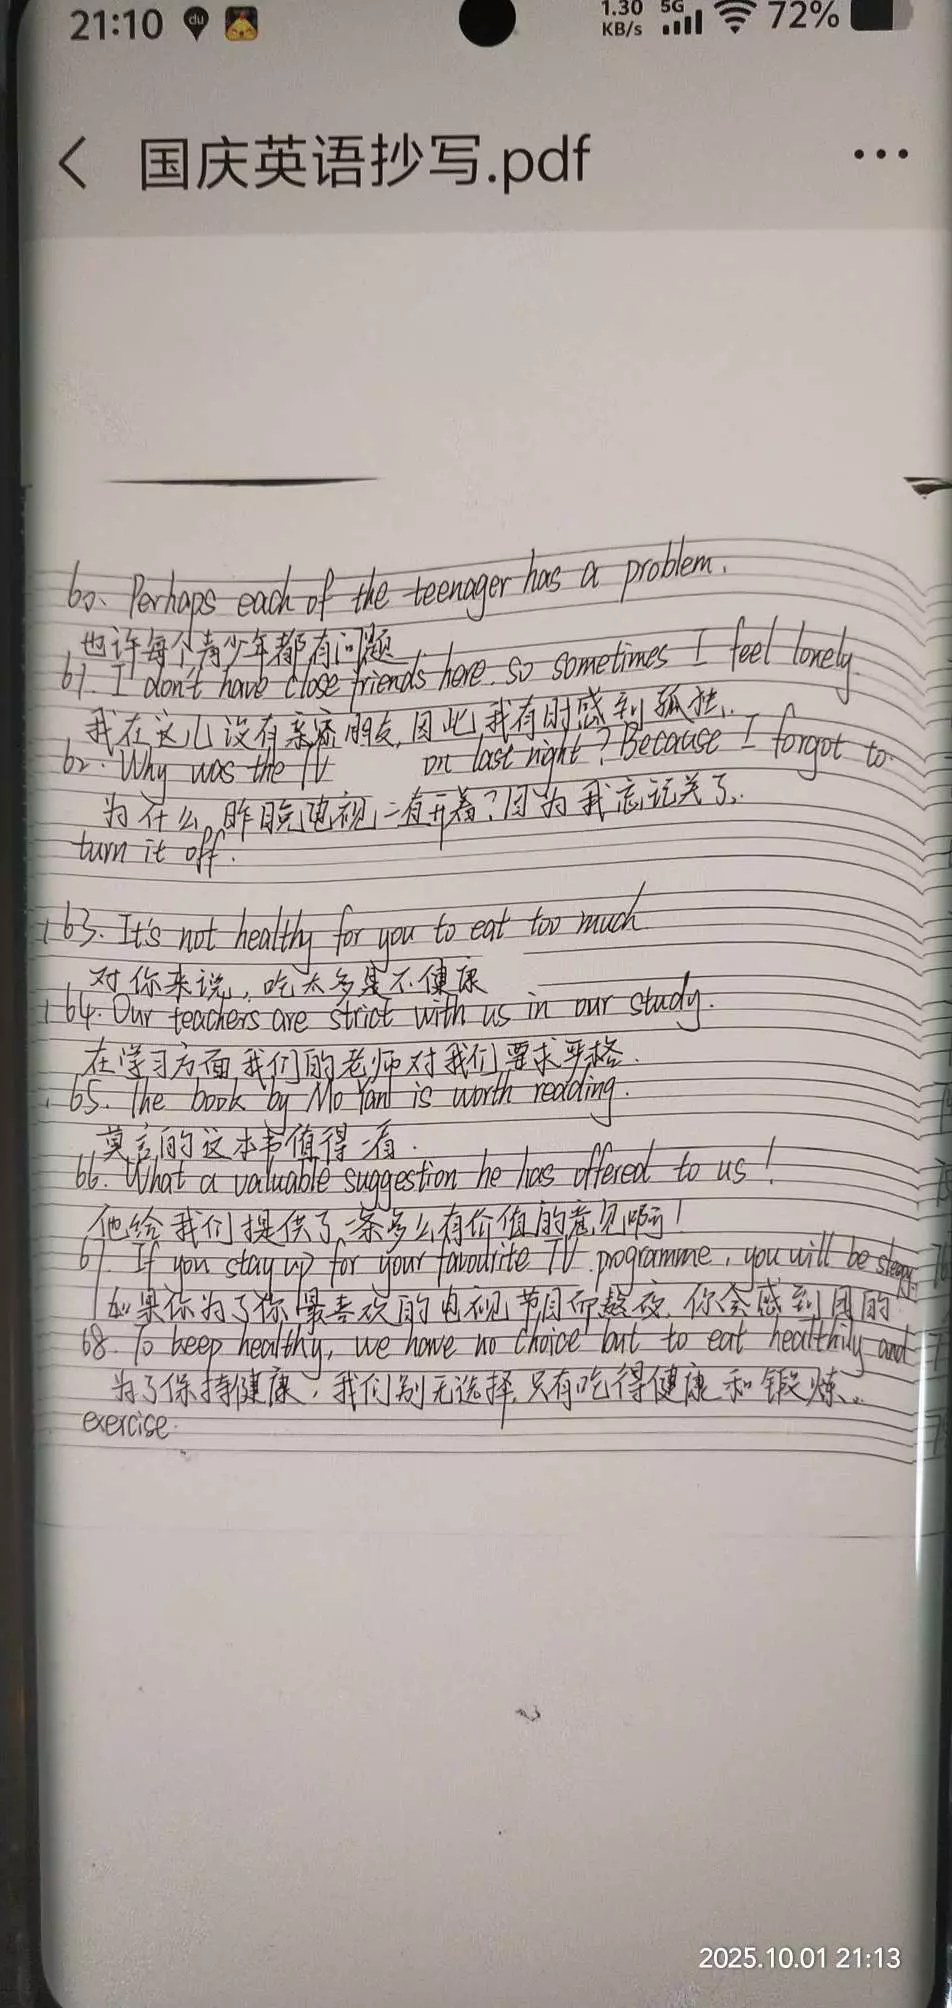 21:10
1.30 KB/s
5G
72%
国庆英语抄写.pdf
60. Perhaps each of the teenager has a problem.
也许每个青少年都有问题
61. I don't have close friends here. so sometimes I feel lonely.
我在这儿没有亲密朋友,因此我有时感到孤独.
62. Why was the TV on last night? Because I forgot to
为什么昨晚电视一直开着?因为我忘记关了.
turn it off.
63. It's not healthy for you to eat too much
对你来说,吃太多是不健康
64. Our teachers are strict with us in our study.
在学习方面我们的老师对我们要求严格.
65. The book by Mo Yan is worth reading.
莫言的这本书值得一看.
66. What a valuable suggestion he has offered to us!
他给我们提供了一条多么有价值的意见啊!
67. If you stay up for your favourite TV programme, you will be sleepy.
如果你为了你最喜欢的电视节目而熬夜,你会感到困的
68. To keep healthy, we have no choice but to eat healthily and
为了保持健康,我们别无选择,只有吃得健康和锻炼.
exercise.
2025.10.01 21:13